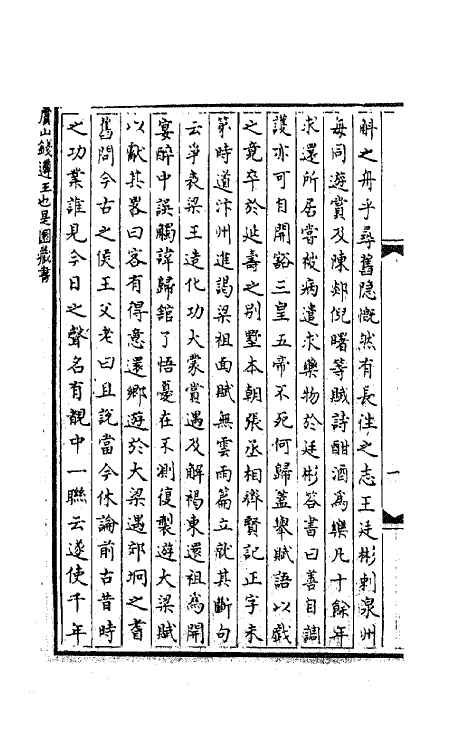 斛之舟乎尋舊隐慨然有長往之志王廷彬刺泉州
每同遊賞及陳郯倪曙等賦詩酣酒為樂凡十餘年
求還所居嘗被病遣求藥物於廷彬答書曰善自調
護亦可自開豁三皇五帝不死何歸蓋舉賦語以戲
之竟卒於延壽之別墅本朝張丞相齊賢記正字未
第時道汴州進謁梁祖面賦無雲雨篇立就其斷句
云爭表梁王造化功大蒙賞遇及解褐東還祖為開
宴醉中誤觸諱歸館了悟憂在不測復製遊大梁賦
以獻其畧曰客有得意還鄉遊於大梁遇郊坰之耆
舊問今古之侯王父老曰且說當今休論前古昔時
之功業誰見今日之聲名有覩中一聯云遂使千年
虞山錢遵王也是園藏書
一